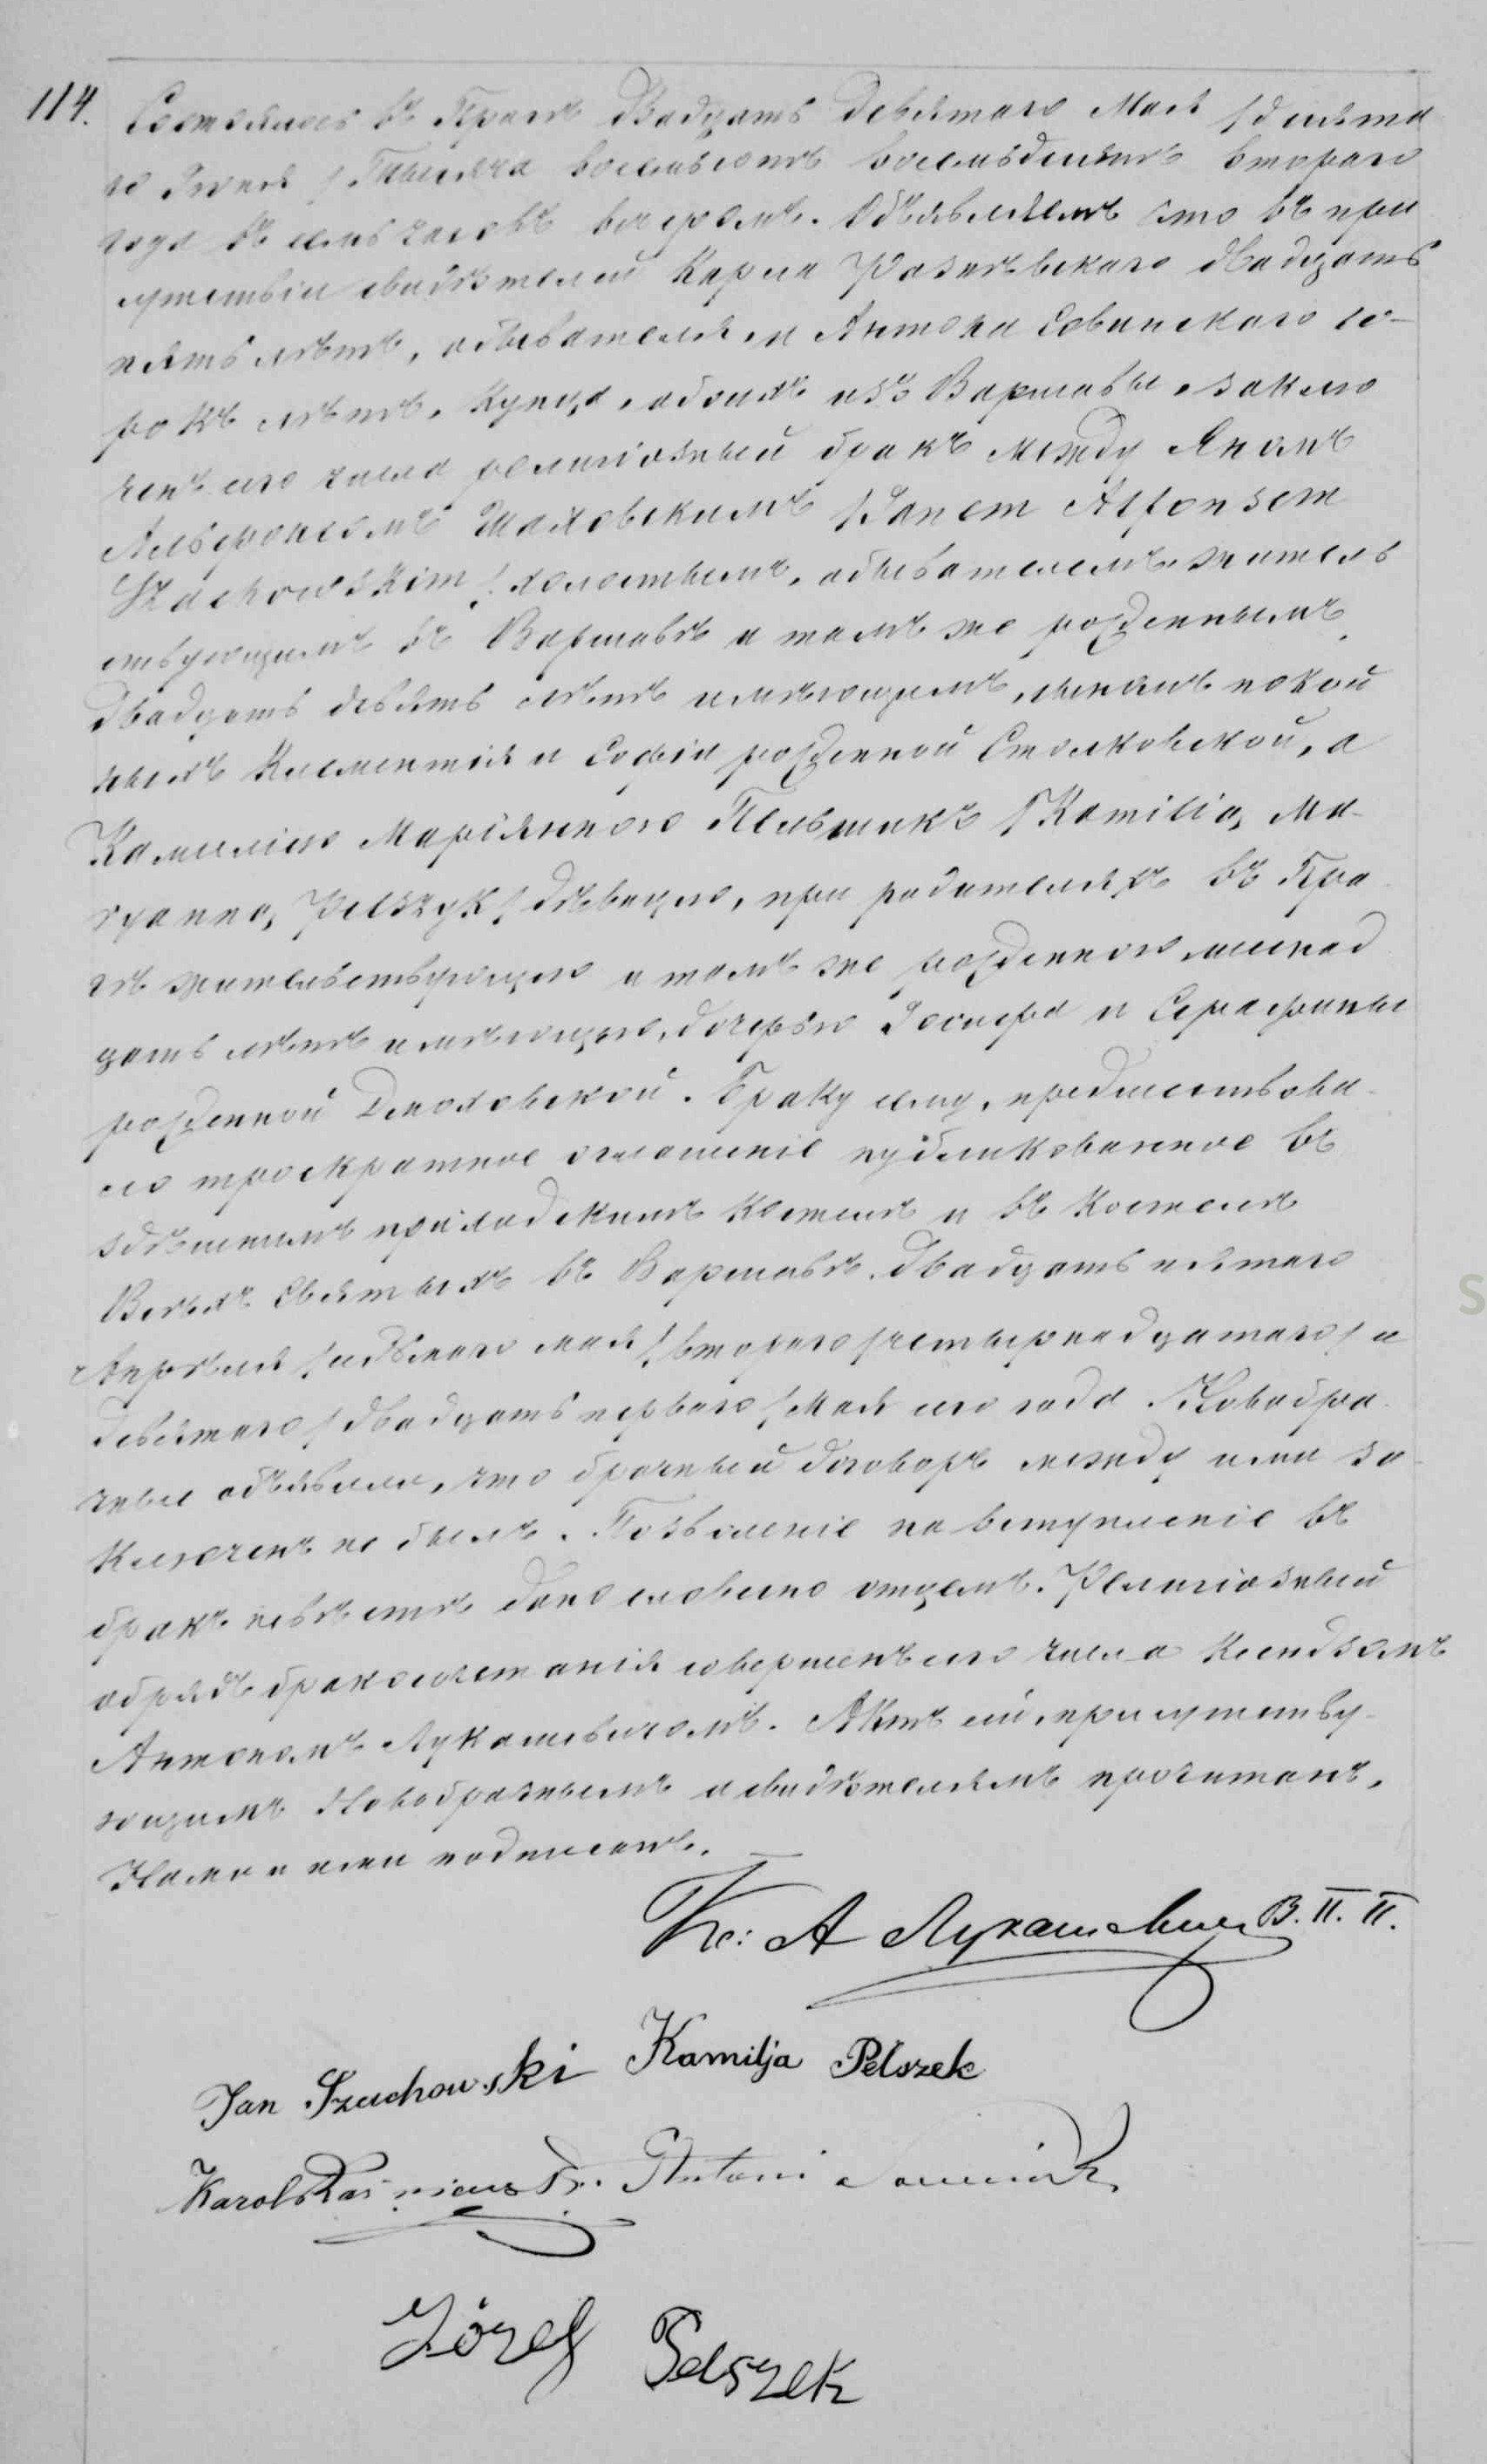 114.
Состоялось въ Прагѣ Двадцать девятаго Мая /десята
го Іюня/ Тысяча восемьсотъ восемьдесятъ втораго
года въ семь часовъ вечеромъ. Объявляемъ что въ при
сутствіи свидѣтелей Карла двадцать
пять лѣтъ, обывателя и Антона Совинскаго со-
рокъ лѣтъ, купца, обоихъ изъ Варшавы, заклю
ченъ сего числа религіозный бракъ между Яномъ
Альфонсомъ Шаховскимъ /Janem Alfonsem
Szachowskim/ холостымъ, обывателемъ, житель
ствующимъ въ Варшавѣ и тамъ же рожденнымъ
двадцать девять лѣтъ имѣющимъ, сыномъ покой
ныхъ Клементія и Софіи рожденной а
Камиліею Маріянною Пельшикъ /Kamilią Ma-
ryanną Pelszyk/ дѣвицею, при родителяхъ въ Пра
гѣ жительствующею и тамъ же рожденною
цать лѣтъ имѣющею, дочерью Іосифа и Серафины
рожденной Браку сему, предшествова-
ло троекратное оглашеніе публикованное въ
здѣшнимъ приходскимъ Костелѣ и въ Костелѣ
Всѣхъ Святыхъ въ Варшавѣ, двадцать пятаго
Апрѣля /седьмаго мая/, втораго /четырнадцатаго/ и
девятаго /двадцать перваго/ Мая сего года. Новобра-
чные объявили, что брачный договоръ между ими за-
ключенъ не былъ. Позволеніе на вступленіе въ
бракъ невѣстѣ дано словесно отцемъ. Религіозный
обрядъ бракосочетанія совершенъ сего числа Ксендзомъ
Антономъ Лукашевичомъ. Актъ сей, присутству-
ющимъ Новобрачнымъ и свидѣтелямъ прочитанъ,
Нами и ими подписанъ. —
Кс: А Лукашевичъ В. П. П.
Jan Szachowski Kamilja Pelszek
Karol Antoni
Józef Pelszek
S